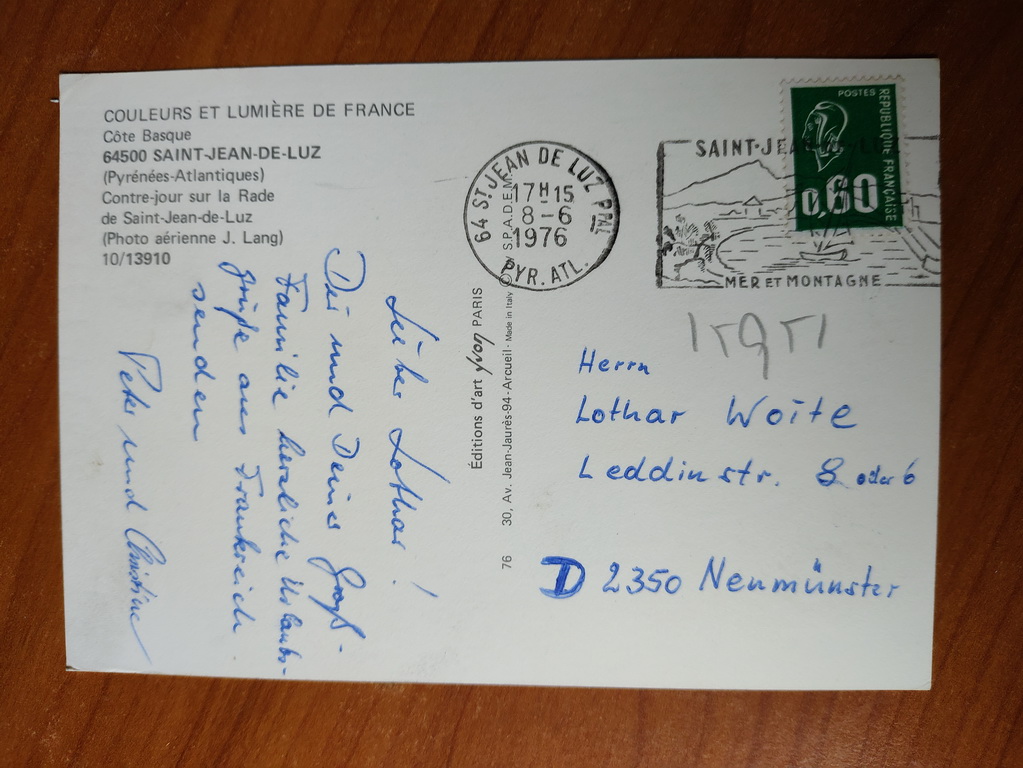 COULEURS ET LUMIÈRE DE FRANCE
Côte Basque
64500 SAINT-JEAN-DE-LUZ
(Pyrénées-Atlantiques)
Contre-jour sur la Rade
de Saint-Jean-de-Luz
(Photo aérienne J. Lang)
10/13910
Lieber Lothar!
Dir und Deiner Groß-
Familie herzliche Urlaubs-
grüße aus Frankreich.
senden
Peter und Christine
Éditions d'art yvon PARIS
30, Av. Jean-Jaurès-94-Arcueil - Made in Italy © S.P.A.D.E.M.
76
64 ST JEAN DE LUZ PPAL
17H15
8-6
1976
PYR. ATL.
SAINT-JEAN-DE-LUZ
MER ET MONTAGNE
POSTES
RÉPUBLIQUE FRANÇAISE
0,60
Herrn
Lothar Woite
Leddinstr. 8 oder 6
D 2350 Neumünster